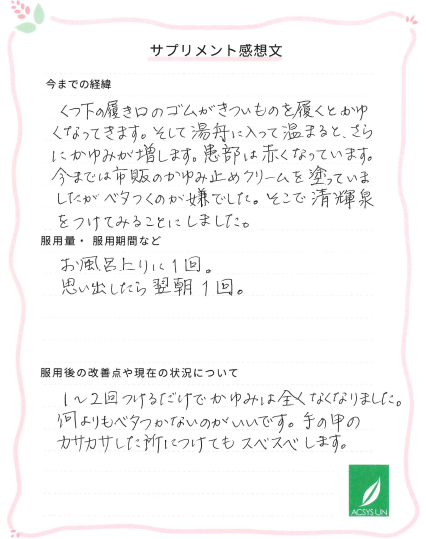 サプリメント感想文
今までの経緯
くつ下の履き口のゴムがきついものを履くとかゆ
くなってきます。そして湯舟に入って温まると、さら
にかゆみが増します。患部は赤くなっています。
今までは市販のかゆみ止めクリームを塗っていま
したがベタつくのが嫌でした。そこで清輝泉
をつけてみることにしました。
服用量・服用期間など
お風呂上りに1回。
思い出したら翌朝1回。
服用後の改善点や現在の状況について
1〜2回つけるだけでかゆみは全くなくなりました。
何よりもベタつかないのがいいです。手の甲の
カサカサした所につけてもスベスベします。
ACSYS LIN